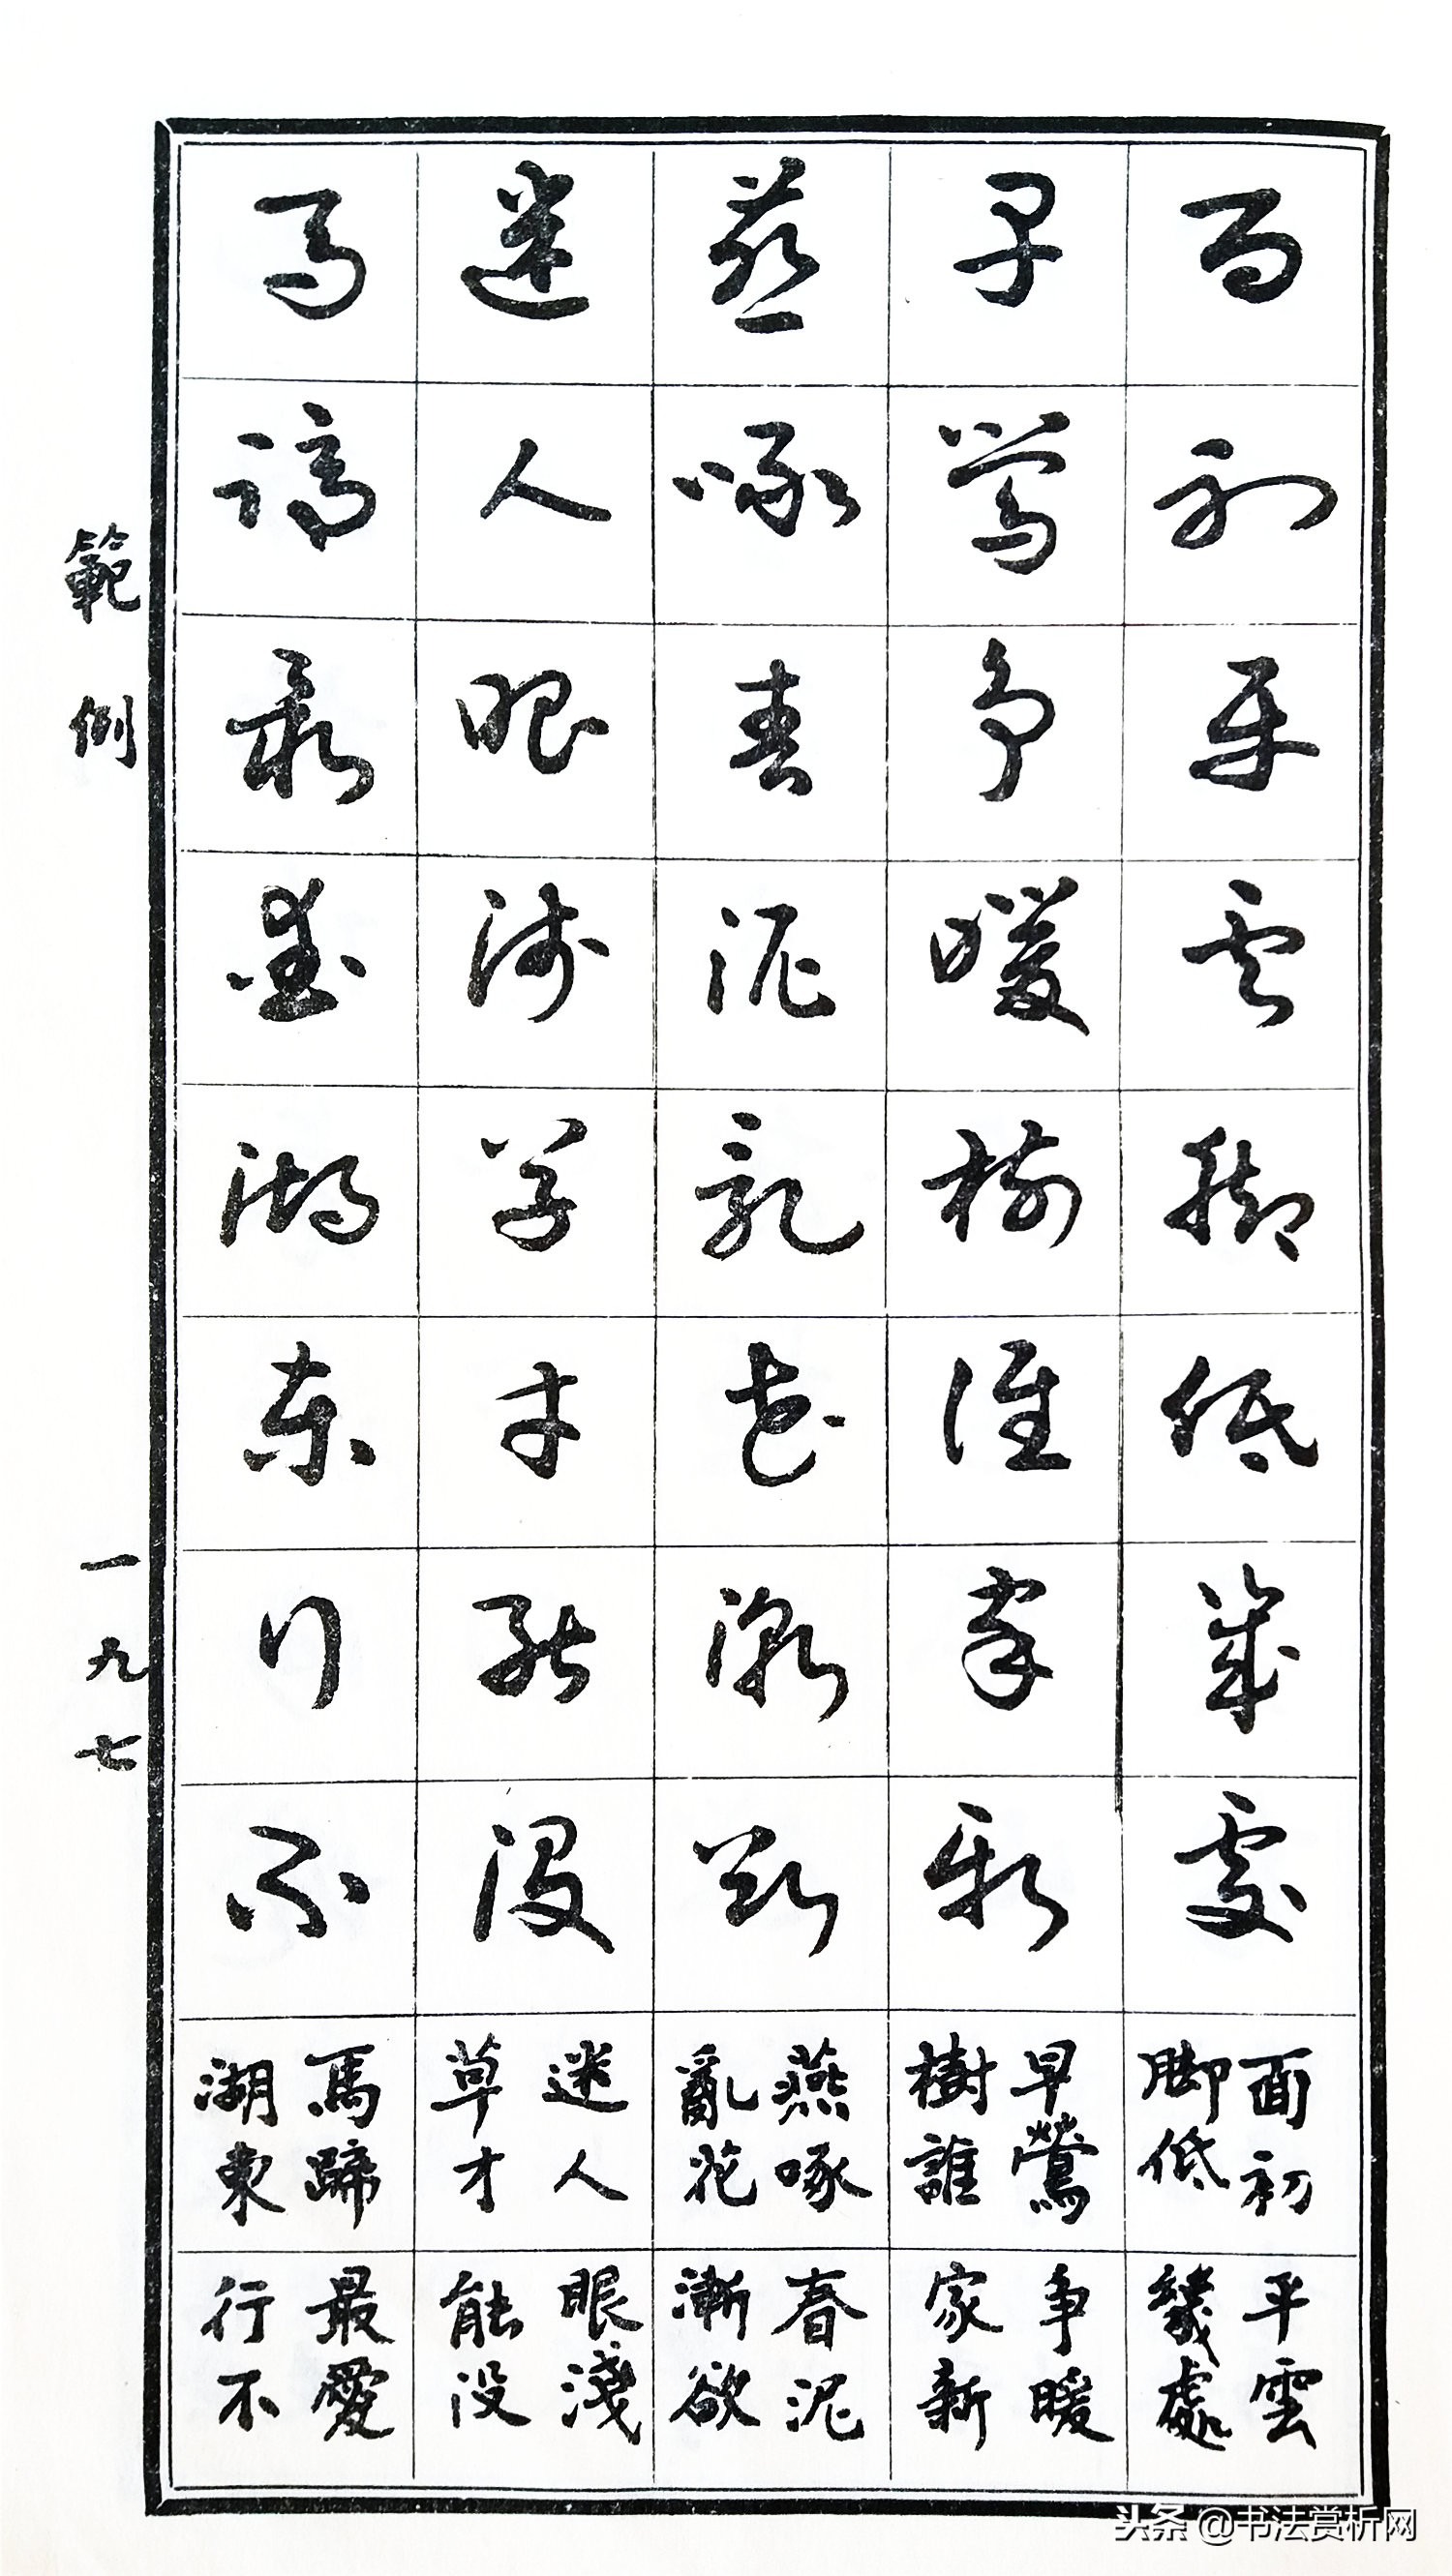 面初平雲脚低幾處
早鶯争暖樹誰家新
燕啄春泥亂花漸欲
迷人眼淺草才能没
馬蹄最愛湖東行不
面初
脚低
早鶯
樹誰
燕啄
亂花
迷人
草才
馬蹄
湖東
平雲
幾處
争暖
家新
春泥
漸欲
眼淺
能没
最愛
行不
範例
一九七
头条 @书法赏析网